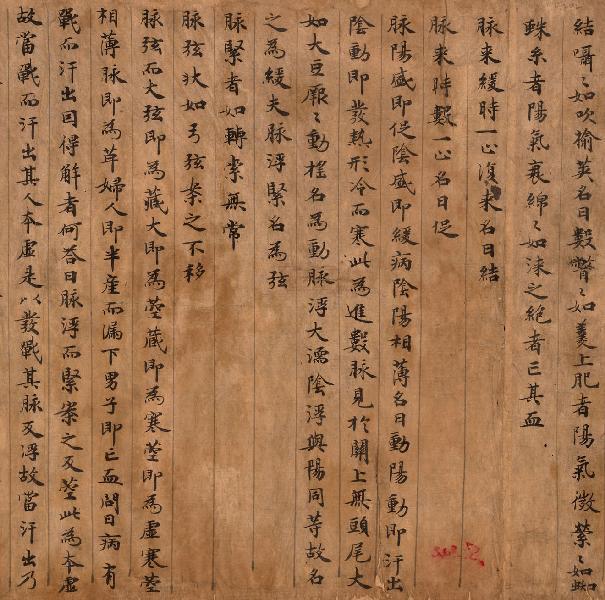 結囁〻如吹揄莢名曰數瞥〻如羹上肥者陽氣微縈〻如蜘
蛛糸者陽氣衰綿〻如漆之絶者亡其血
脉来緩時一止復来名曰結
脉来時數一止名曰促
脉陽盛即促陰盛即緩病陰陽相薄名曰動陽動即汗出
陰動即發熱形冷而寒此為進數脉見於關上無頭尾大
如大豆厥〻動搖名為動脉浮大濡陰浮與陽同等故名
之為緩夫脉浮緊名為弦
脉緊者如轉索無常
脉弦狀如弓弦案之不移
脉弦而大弦即為藏大即為芤藏即為寒芤即為虛寒芤
相薄脉即為革婦人即半産而漏下男子即亡血問曰病有
戰而汗出因得解者何荅曰脉浮而緊案之反芤此為本虛
故當戰而汗出其人本虛是以發戰其脉反浮故當汗出乃